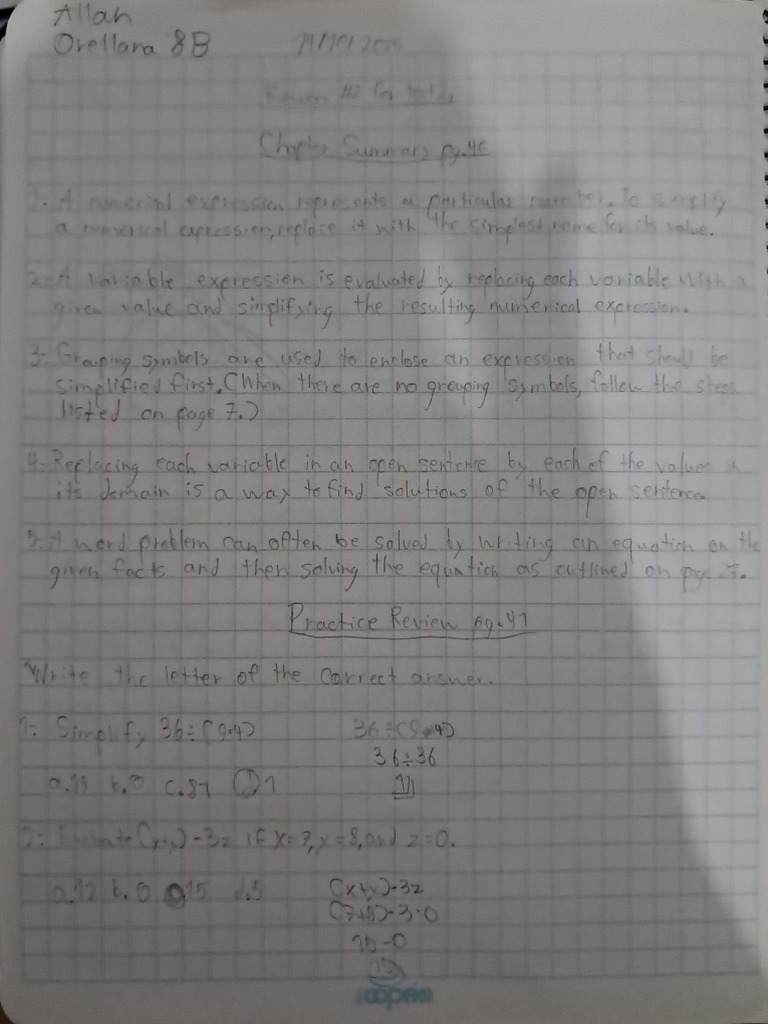 Allan
Orellana 8B
Chapter Summary pg.40
1. A numerical expression represents a particular number. To simplify
a numerical expression, replace it with the simplest name for its value.
2- A variable expression is evaluated by replacing each variable with a
given value and simplifying the resulting numerical expression.
3- Grouping symbols are used to enclose an expression that should be
simplified first. (When there are no grouping symbols, follow the steps
listed on page 7.)
4- Replacing each variable in an open sentence by each of the values
its domain is a way to find solutions of the open sentence.
5. A word problem can often be solved by writing an equation on the
given facts and then solving the equation as outlined on pg. 27.
Practice Review pg.41
Write the letter of the correct answer.
1- Simplify 36÷(9·4) 36÷(9·4)
36÷36
b.0 c.81 1 1
2- Evaluate -3z if x=7, =8, and z=0.
a.12 b.0 15 d.5 -3z
(7+8)-3·0
15-0
15